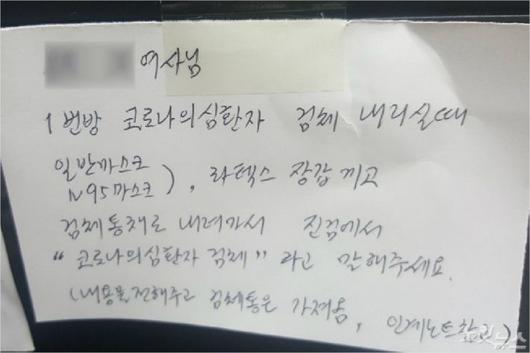 여사님
1번방 코로나의심환자 검체 내리실때
일반마스크
N95마스크 ), 라텍스 장갑 끼고
검체통채로 내려가서 진검에서
"코로나의심환자 검체" 라고 말해주세요.
(내용물전해주고 검체통은 가져옴, 인계노트참고)